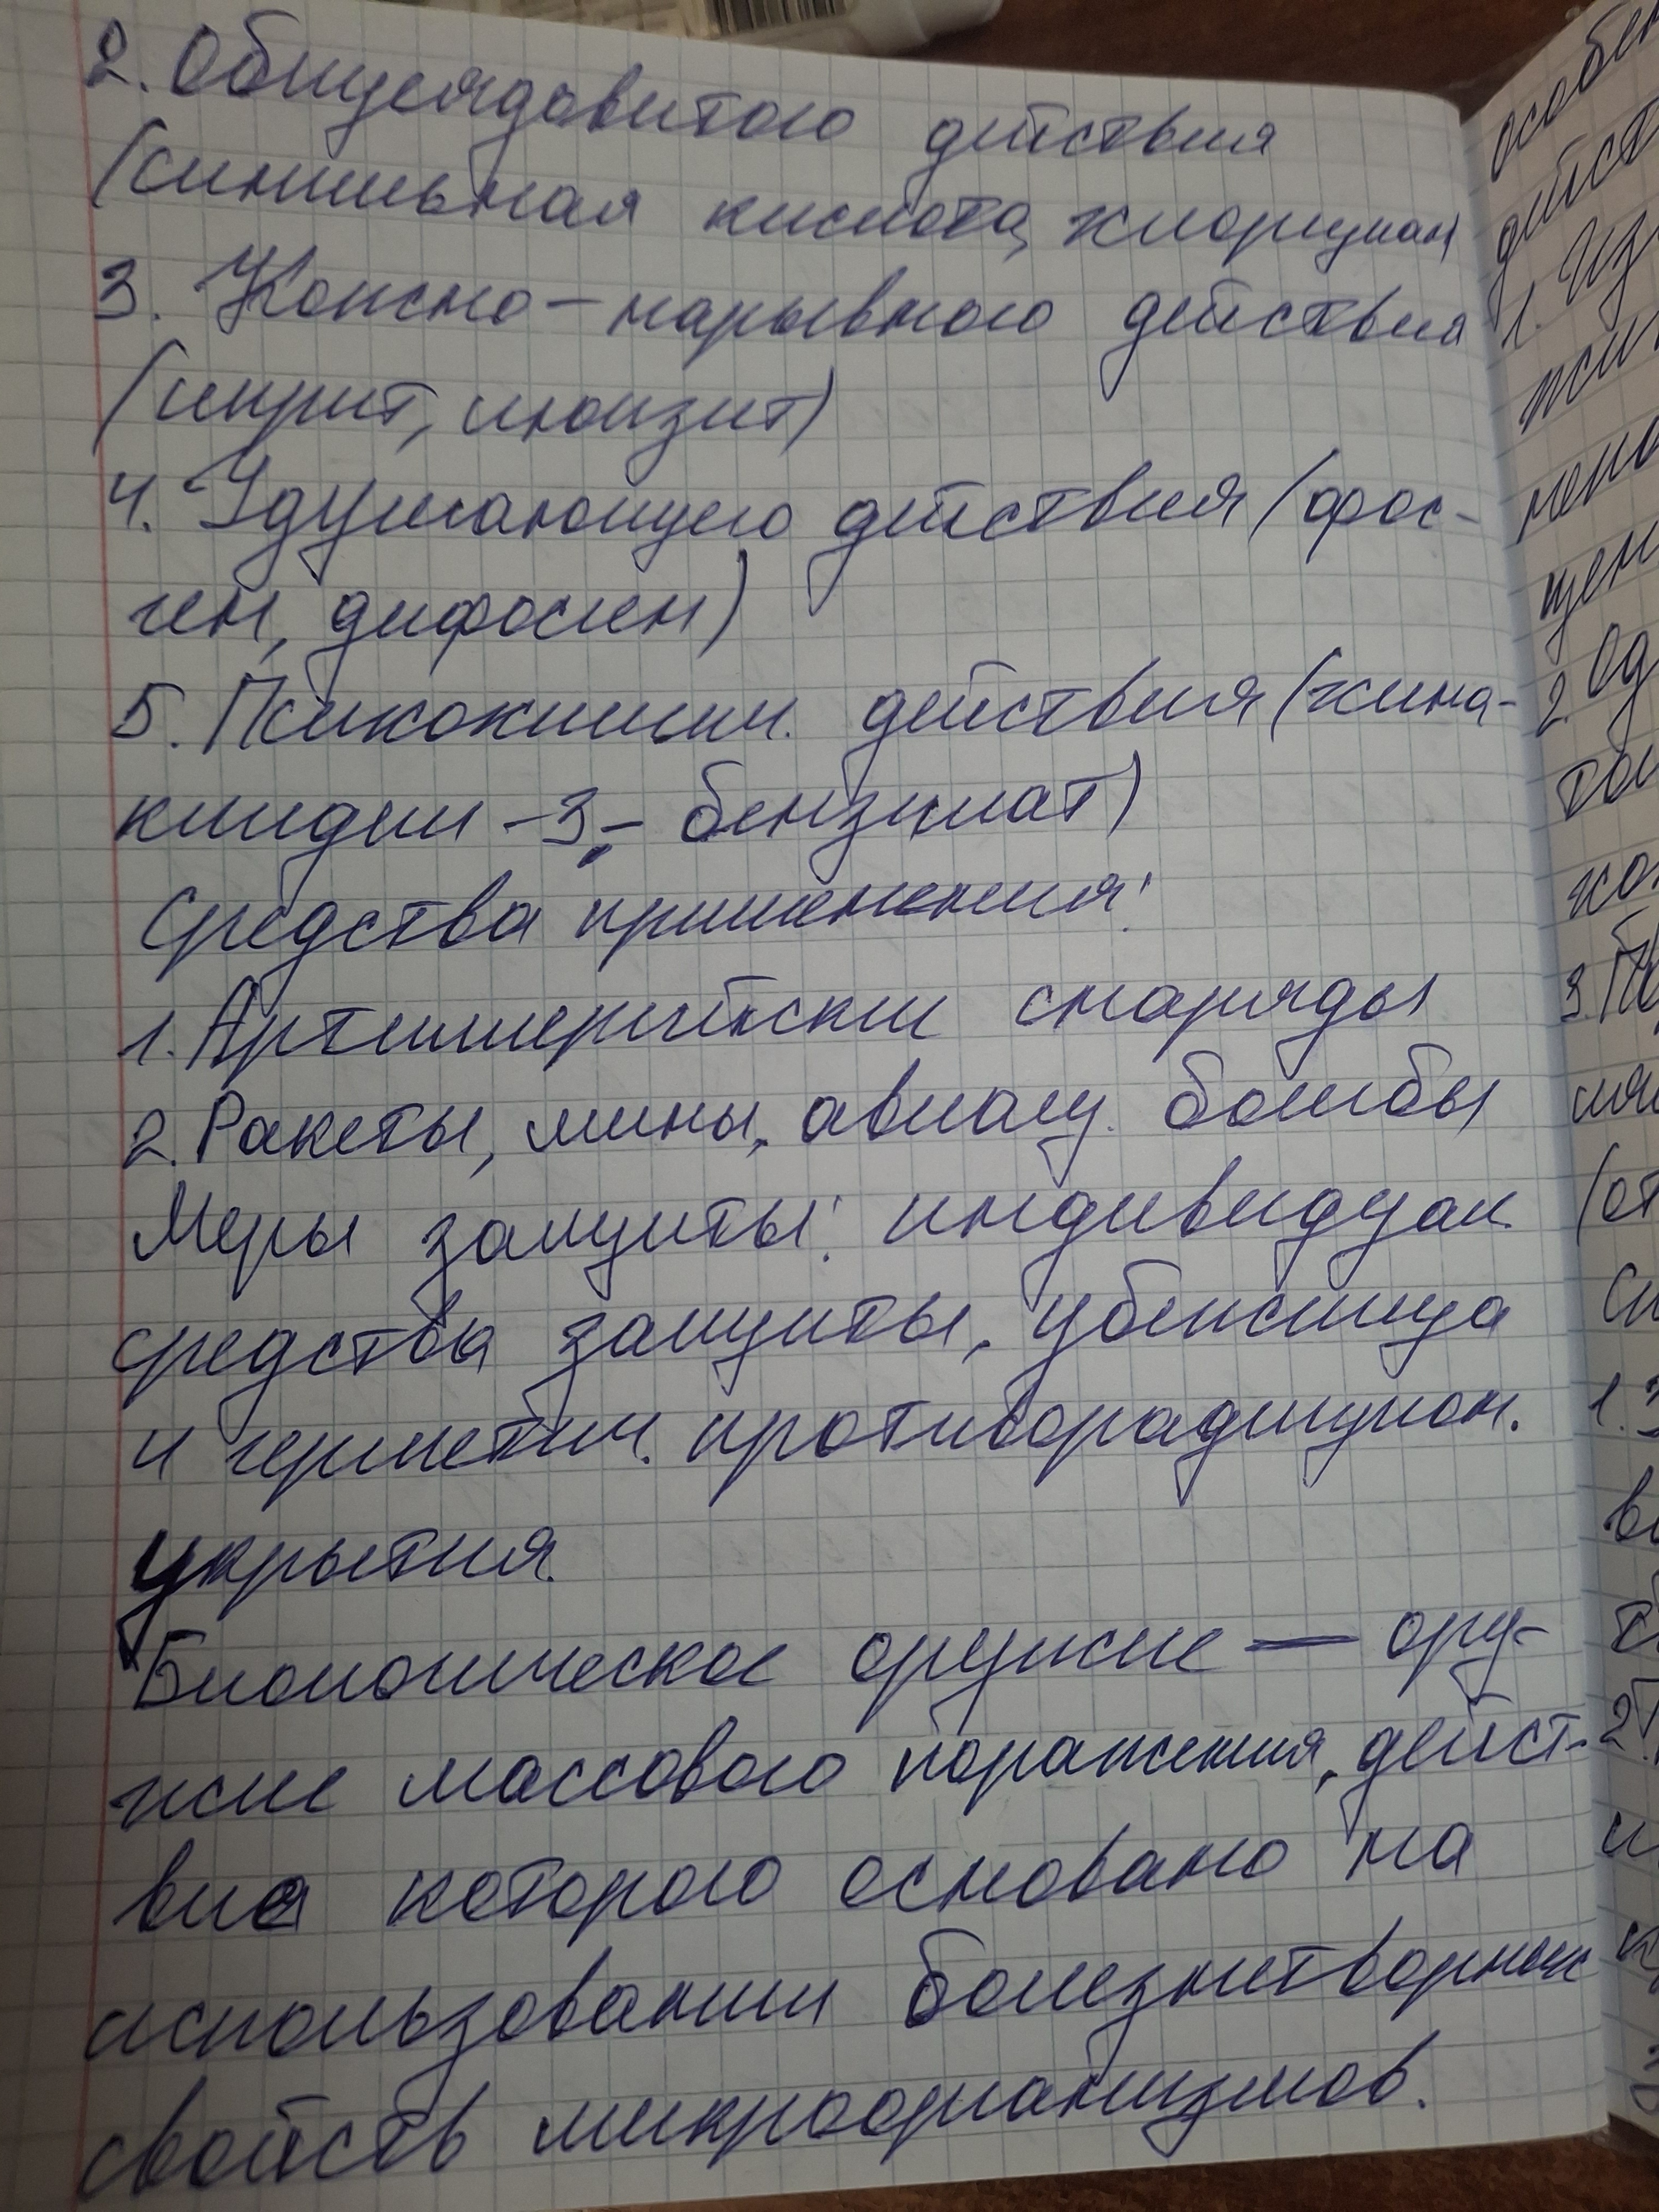 2. Общеядовитого действия
(синильная кислота, хлорциан)
3. Кожно-нарывного действия
(иприт, люизит)
4. Удушающего действия (фос-
ген, дифосген)
5. Психохимич. действия (хина-
клидил-3,- бензилат)
Средства применения:
1. Артиллерийские снаряды
2. Ракеты, мины, авиац. бомбы
Меры защиты: индивидуал.
средства защиты, убежища
и герметич. противорадицион.
укрытия.
Биологическое оружие — ору-
жие массового поражения, дейст-
вие которого основано на
использовании болезнетворных
свойств микроорганизмов.
особен
дейст
1. Из
2. Од
3. По
(от
1. З
2.